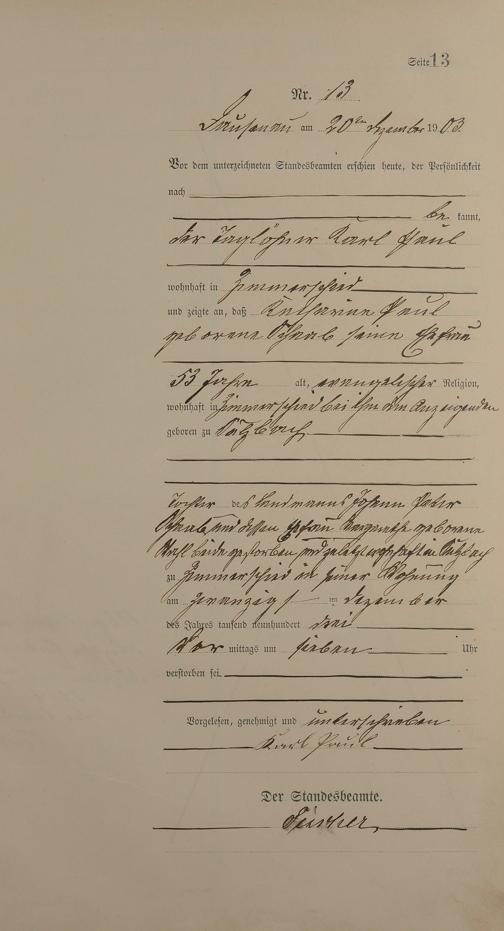 Seite 13
Nr. 13
Dausenau am 20ten Dezember 1903.
Vor dem unterzeichneten Standesbeamten erschien heute, der Persönlichkeit
nach
be kannt,
der Taglöhner Karl Paul
wohnhaft in Zimmerschied
und zeigte an, daß Katharine Paul
geborene Schaab seine Ehefrau
53 Jahre alt, evangelischer Religion,
wohnhaft in Zimmerschied bei ihm dem Anzeigenden
geboren zu Sulzbach
Tochter des Landmanns Johann Peter
Schaab und dessen Ehefrau geborene
beide gestorben und zuletzt wohnhaft in Sulzbach
zu Zimmerschied in seiner Wohnung
am zwanzigst en Dezember
des Jahres tausend neunhundert drei
Vor mittags um sieben Uhr
verstorben sei.
Vorgelesen, genehmigt und unterschrieben
Karl Paul
Der Standesbeamte.